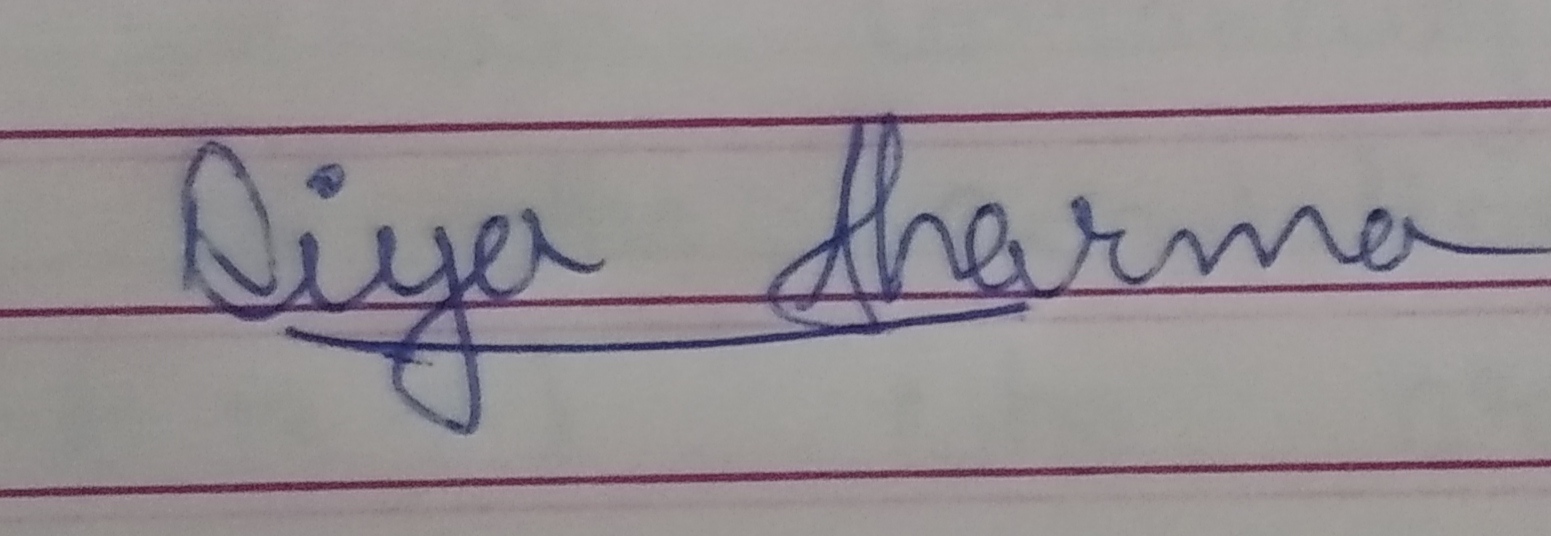 Diya Sharma